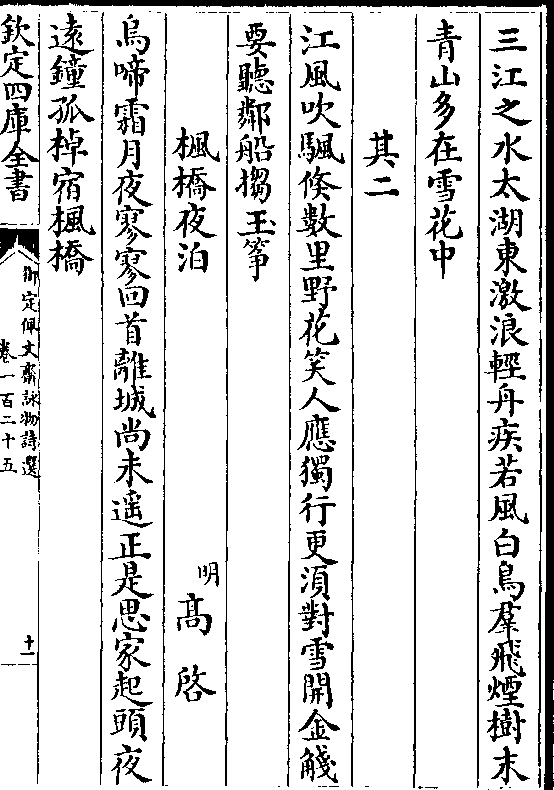 三江之水太湖東激浪輕舟疾若風白鳥羣飛煙樹末
青山多在雪花中
其二
江風吹颿倐數里野花笑人應獨行更湏對雪開金觴
要聽鄰船搊玉筝
楓橋夜泊
明 髙啓
烏啼霜月夜寥寥回首離城尚未遥正是思家起頭夜
遠鐘孤棹宿楓橋
欽定四庫全書
御定佩文齋詠物詩選
卷一百二十五
十一